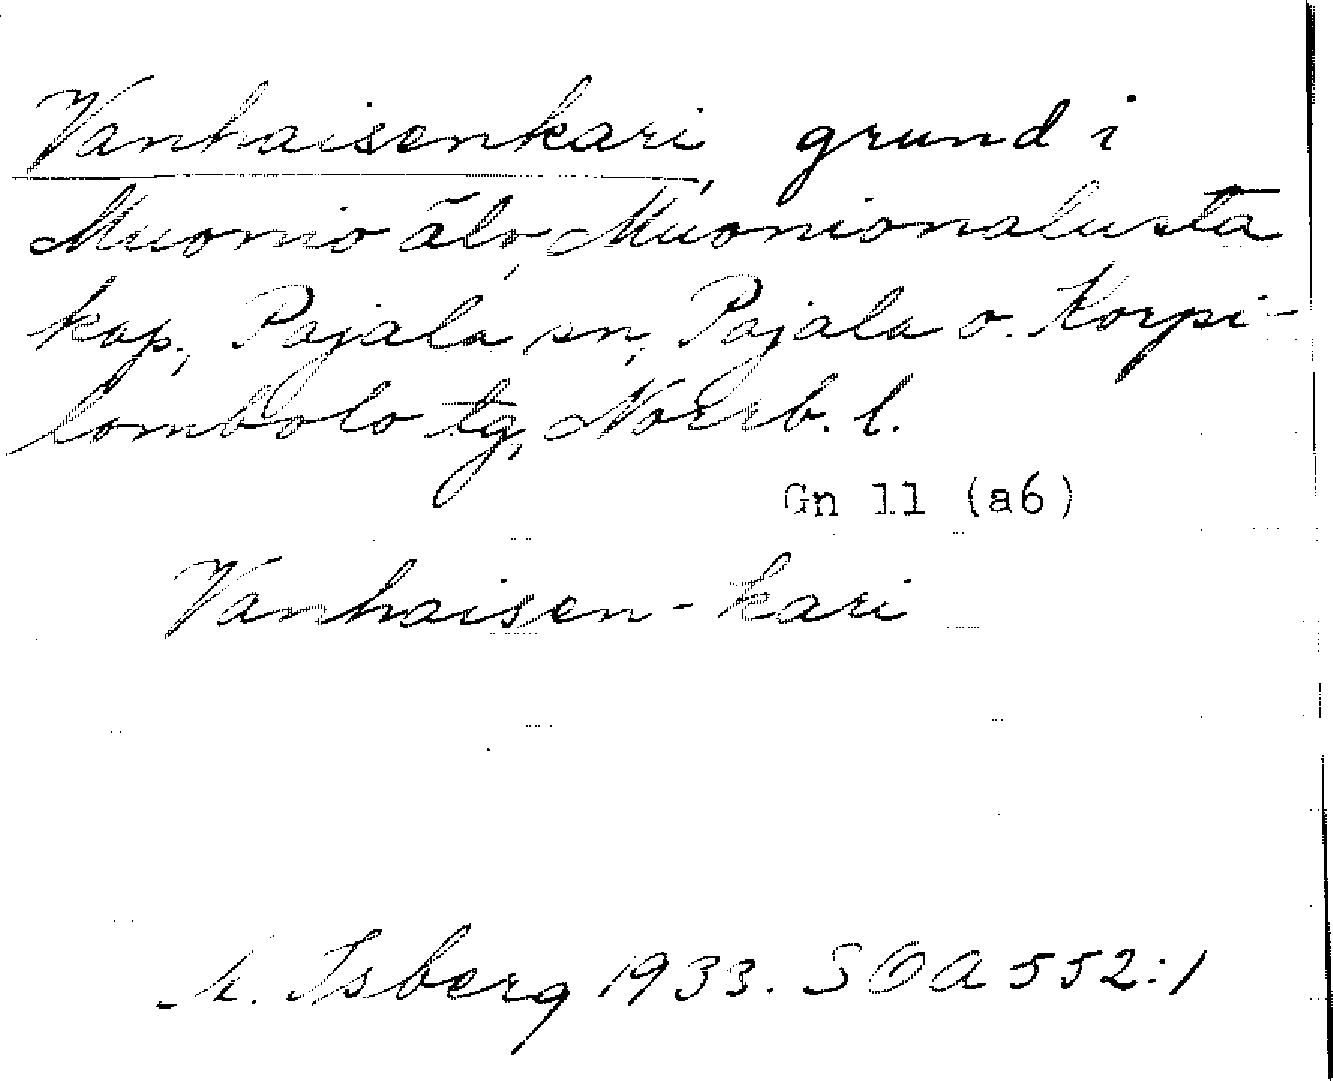 Vanhaisenkari, grund i
Muonio älv, Muonionalusta
kap., Pajala sn, Pajala o. Korpi-
lombolo tg, Norrb. l.
Gn 11 (a6)
Vanhaisen-kari
A. Isberg 1933. SOA 552:1